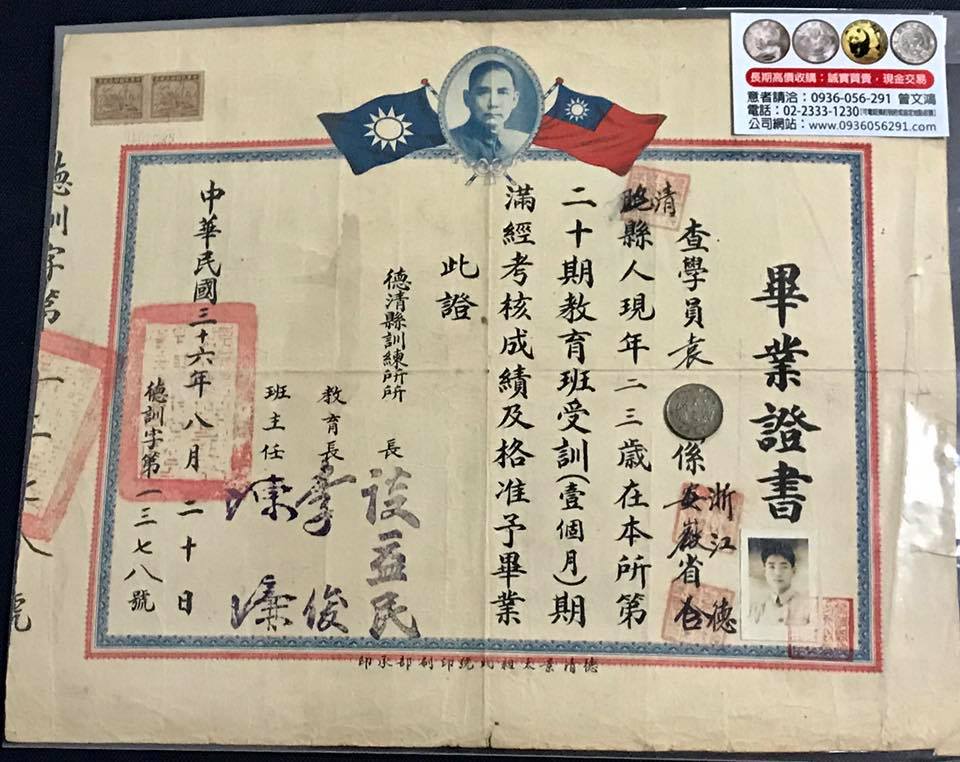 長期高價收購：誠實買賣，現金交易
意者請洽：0936-056-291 曾文鴻
電話：02-2333-1230
公司網站：www.0936056291.com
畢業證書
查學員袁 係安徽省合
浙江 德
清
縣人現年二三歲在本所第
二十期教育班受訓(壹個月)期
滿經考核成績及格准予畢業
此證
德清縣訓練所所長
教育長 俊
班主任 濂
中華民國三十六年八月二十日
德訓字第一三七八號
德訓字第